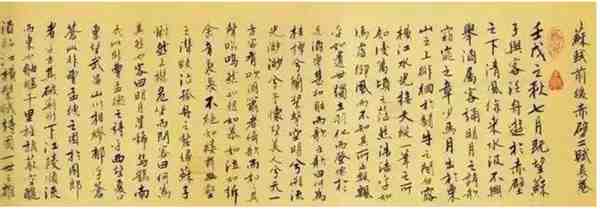 蘇軾前後赤壁二賦長卷
壬戌之秋七月既望蘇
子與客泛舟遊於赤壁
之下清風徐來水波不興
舉酒屬客誦明月之詩歌
窈窕之章少焉月出於東
山之上徘徊於斗牛之間白露
橫江水光接天縱一葦之所
如凌萬頃之茫然浩浩乎如
馮虛御風而不知其所止飄飄
乎如遺世獨立羽化而登仙於
是飲酒樂甚扣舷而歌之歌曰桂
棹兮蘭槳擊空明兮泝流
光渺渺兮予懷望美人兮天一
方客有吹洞簫者倚歌而和其
聲嗚嗚然如怨如慕如泣如訴
餘音嫋嫋不絕如縷舞幽壑
之潛蛟泣孤舟之嫠婦蘇子
愀然正襟危坐而問客曰何為
其然也客曰月明星稀烏鵲南
飛此非曹孟德之詩乎西望夏口
東望武昌山川相繆鬱乎蒼
蒼此非孟德之困於周郎
者乎方其破荊州下江陵順流
而東也舳艫千里旌旗蔽空釃
酒臨江橫槊賦詩固一世之雄